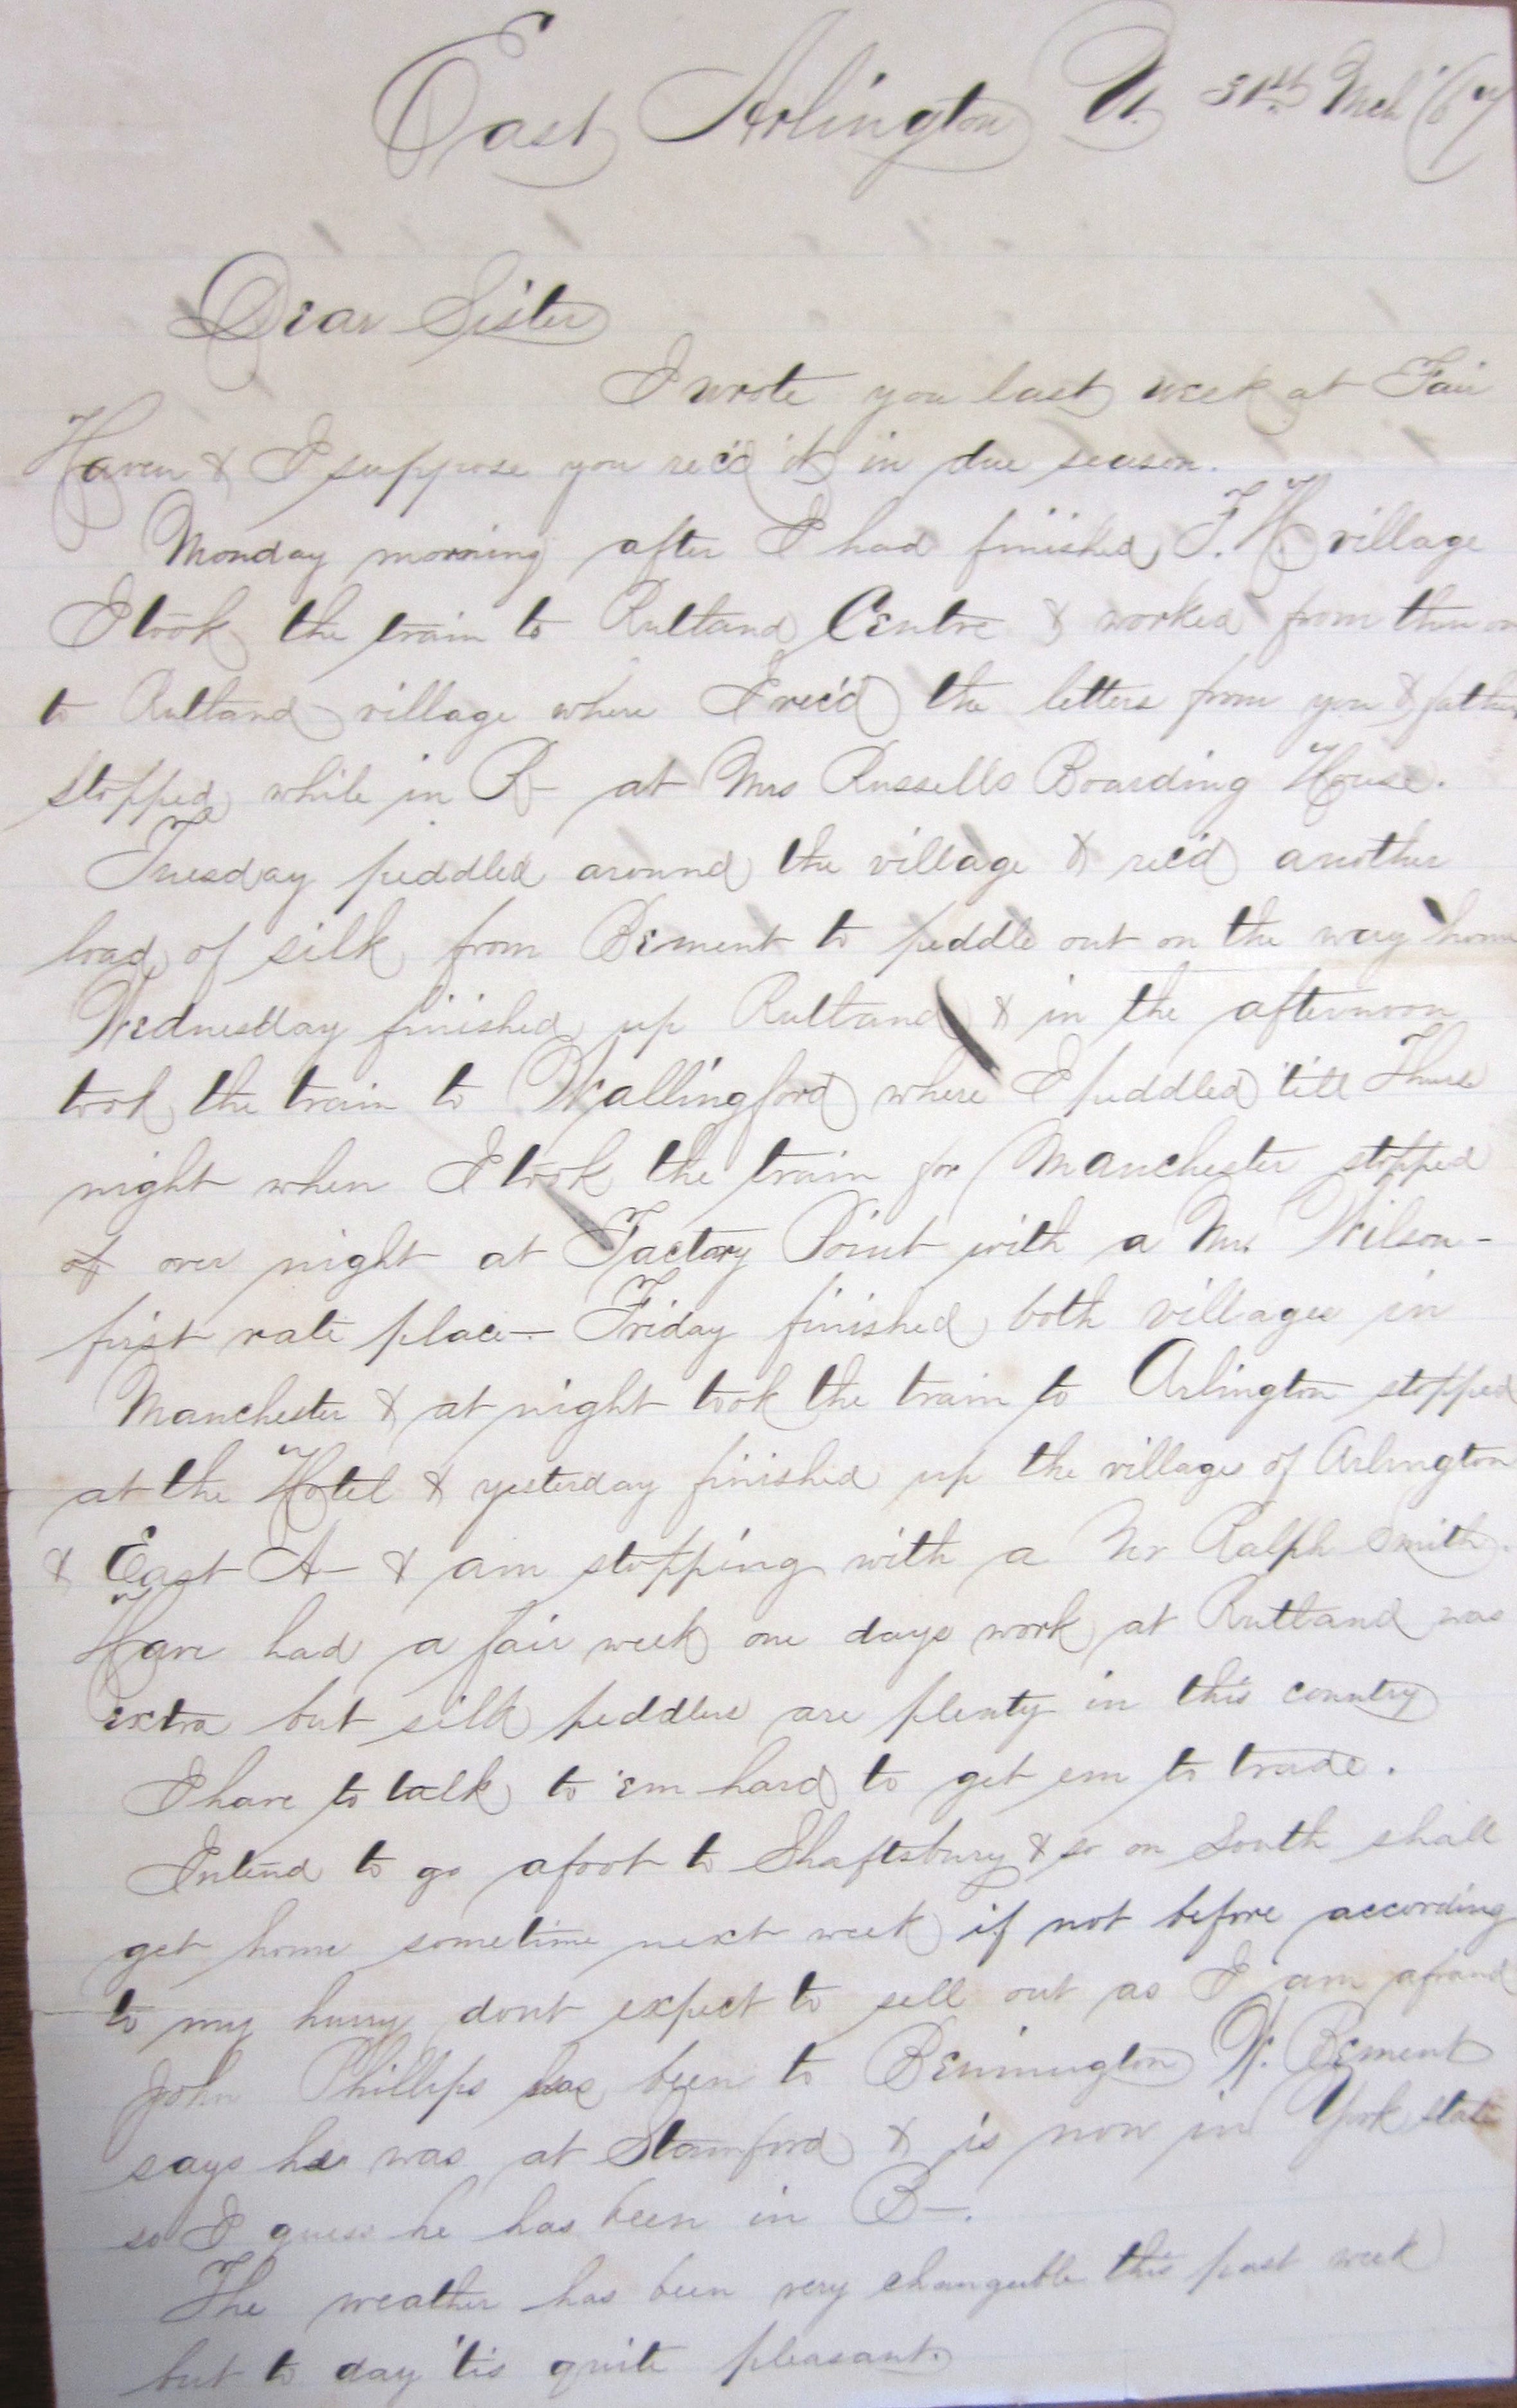 East Arlington Vt. 31st Mch '67
Dear Sister
I wrote you last week at Fair
Haven & I suppose you rec'd it in due season.
Monday morning after I had finished F. H. village
I took the train to Rutland Centre & worked from then on
to Rutland village where I rec'd the letters from you & father
stopped while in R— at Mrs Russells Boarding House.
Tuesday peddled around the village & rec'd another
load of silk from Bement to peddle out on the way home
Wednesday finished up Rutland & in the afternoon
took the train to Wallingford where I peddled 'till Thurs
night when I took the train for Manchester stopped
over night at Factory Point with a Mr. Wilson -
first rate place — Friday finished both villages in
Manchester & at night took the train to Arlington stopped
at the Hotel & yesterday finished up the village of Arlington
& East A— & am stopping with a Mr Ralph Smith.
Have had a fair week one days work at Rutland was
extra but silk peddlers are plenty in this country
I have to talk to 'em hard to get em to trade.
Intend to go afoot to Shaftsbury & so on South shall
get home sometime next week if not before according
to my hurry dont expect to sell out as I am afraid
John Phillips has been to Bennington W. Bement
says he was at Stamford & is now in York state
so I guess he has been in B—.
The weather has been very changeble this past week
but to day 'tis quite pleasant.